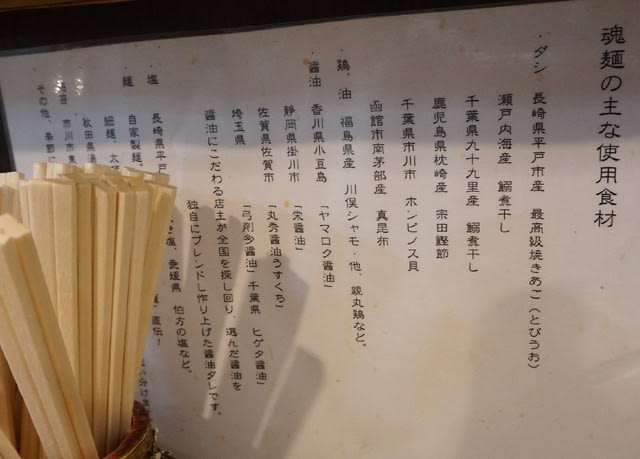 魂麺の主な使用食材
・ダシ 長崎県平戸市産 最高級焼きあご（とびうお）
瀬戸内海産 鰯煮干し
千葉県九十九里産 鰯煮干し
鹿児島県枕崎産 宗田鰹節
千葉県市川市 ホンビノス貝
函館市南茅部産 真昆布
・鶏、油 福島県産 川俣シャモ・他、親丸鶏など。
・醤油 香川県小豆島 「ヤマロク醤油」
静岡県掛川市 「栄醤油」
佐賀県佐賀市 「丸秀醤油うすくち」
埼玉県 「弓削多醤油」千葉県 ヒゲタ醤油」
醤油にこだわる店主が全国を探し回り、選んだ醤油を
独自にブレンドし作り上げた醤油タレです。
・塩 長崎県平戸 塩、愛媛県 伯方の塩など。
・麺 自家製麺。 直伝！
細麺、太
秋田県
市川市
その他、季節 い分けま